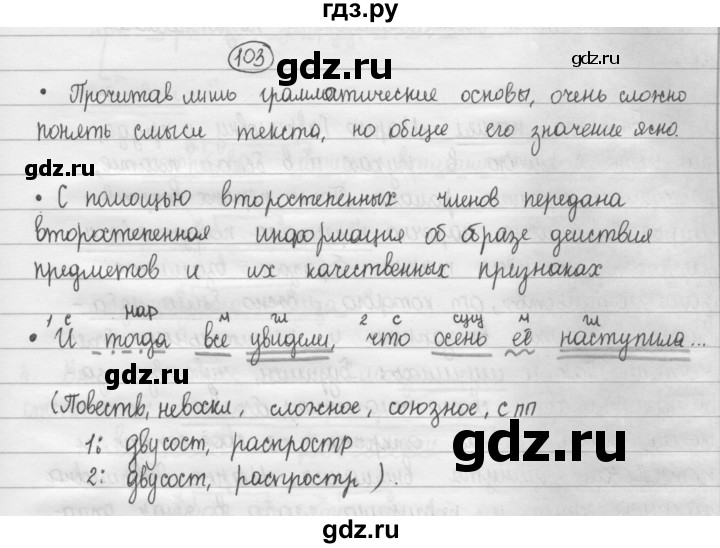 гдз.ру
103
gdz.ru
gdz.ru
• Прочитав лишь грамматические основы, очень сложно
понять смысл текста, но общее его значение ясно.
gdz.ru
• С помощью второстепенных членов передана
второстепенная информация об образе действия
предметов и их качественных признаках
gdz.ru
1 с нар м гл 2 с сущ м гл
• И тогда все увидели, что осень её наступила...
gdz.ru
(Повеств, невоскл, сложное, союзное, спп
1: двусост, распростр
2: двусост, распростр)..
gdz.ru
gdz.ru